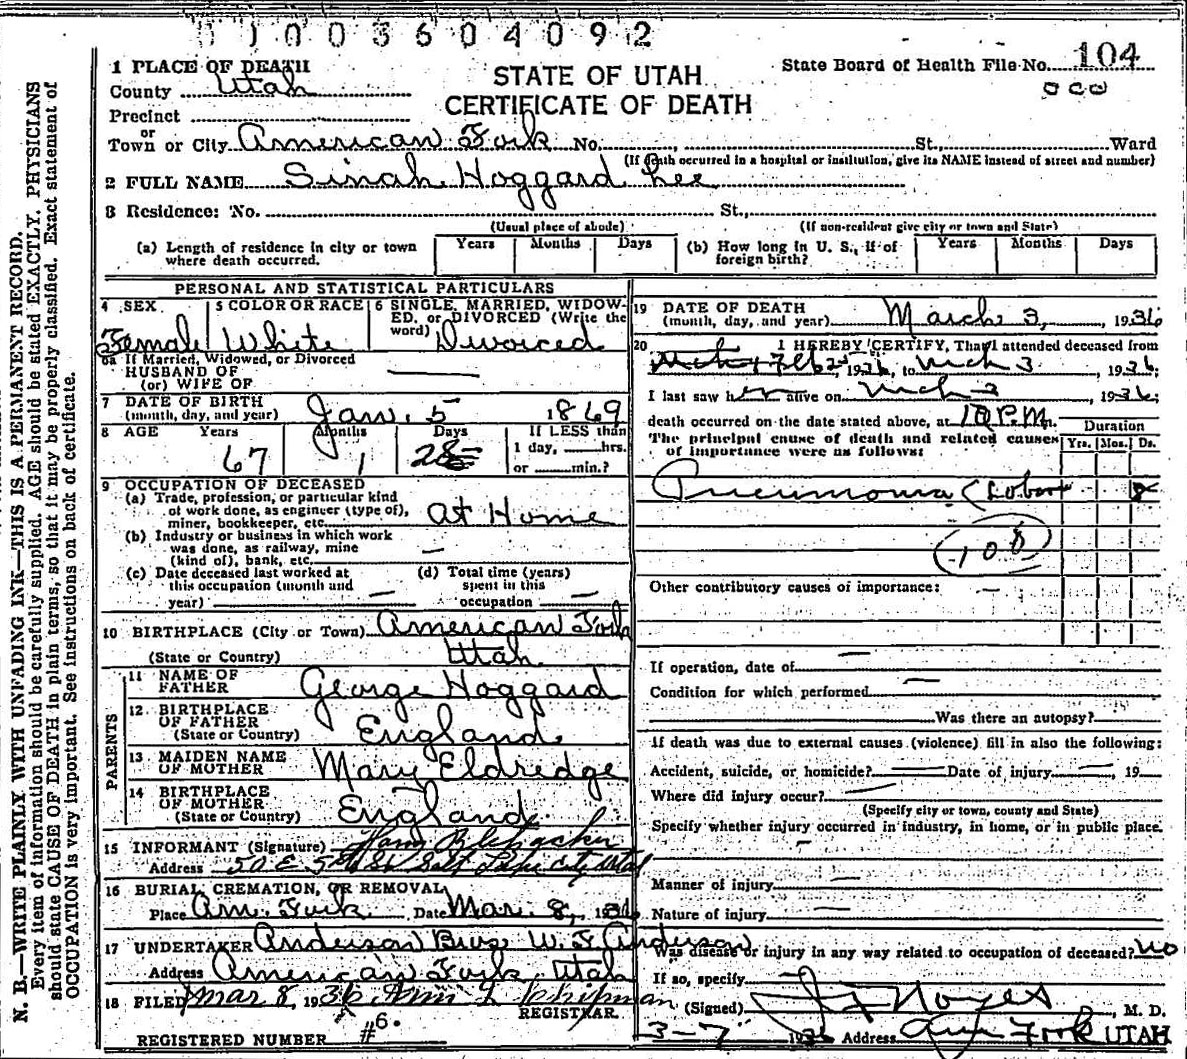 0 0 0 3 6 0 4 0 9 2
N. B.—WRITE PLAINLY WITH UNFADING INK—THIS IS A PERMANENT RECORD.
Every item of information should be carefully supplied. AGE should be stated EXACTLY. PHYSICIANS
should state CAUSE OF DEATH in plain terms, so that it may be properly classified. Exact statement of
OCCUPATION is very important. See instructions on back of certificate.
STATE OF UTAH
CERTIFICATE OF DEATH
State Board of Health File No. 104
000
1 PLACE OF DEATH
County Utah
Precinct
or
Town or City American Fork No. , St., Ward
(If death occurred in a hospital or institution, give its NAME instead of street and number)
2 FULL NAME Sinah Hoggard Lee
3 Residence: No. St.,
(Usual place of abode) (If non-resident give city or town and State)
(a) Length of residence in city or town where death occurred. Years Months Days
(b) How long in U. S., if of foreign birth? Years Months Days
PERSONAL AND STATISTICAL PARTICULARS
4 SEX Female
5 COLOR OR RACE White
6 SINGLE, MARRIED, WIDOWED, or DIVORCED (Write the word) Divorced
6a If Married, Widowed, or Divorced
HUSBAND OF
(or) WIFE OF
7 DATE OF BIRTH
(month, day, and year) Jan. 5 1869
8 AGE Years Months Days If LESS than
67 1 28 1 day, hrs.
or min.?
9 OCCUPATION OF DECEASED
(a) Trade, profession, or particular kind
of work done, as engineer (type of),
miner, bookkeeper, etc. At Home
(b) Industry or business in which work
was done, as railway, mine
(kind of), bank, etc. —
(c) Date deceased last worked at
this occupation (month and
year) —
(d) Total time (years)
spent in this
occupation —
10 BIRTHPLACE (City or Town) American Fork
(State or Country) Utah
PARENTS
11 NAME OF
FATHER George Hoggard
12 BIRTHPLACE
OF FATHER
(State or Country) England
13 MAIDEN NAME
OF MOTHER Mary Eldredge
14 BIRTHPLACE
OF MOTHER
(State or Country) England
15 INFORMANT (Signature)
Address 50 E. 5th Salt Lake City Utah
16 BURIAL, CREMATION, OR REMOVAL
Place Am. Fork Date Mar. 8, 1936
17 UNDERTAKER Anderson Bros W. F. Anderson
Address American Fork, Utah
18 FILED Mar 8, 1936 Chipman
REGISTRAR.
REGISTERED NUMBER #6.
19 DATE OF DEATH
(month, day, and year) March 3, , 1936
20 I HEREBY CERTIFY, That I attended deceased from
Feb 25, 1936, to Mch 3, 1936;
I last saw her alive on Mch 3, 1936;
death occurred on the date stated above, at 10 P.M.
The principal cause of death and related causes
of importance were as follows:
Duration
Yrs. Mos. Ds.
Pneumonia (Lobar 8
(108)
Other contributory causes of importance: —
If operation, date of —
Condition for which performed —
Was there an autopsy? —
If death was due to external causes (violence) fill in also the following:
Accident, suicide, or homicide? — Date of injury —, 19
Where did injury occur? —
(Specify city or town, county and State)
Specify whether injury occurred in industry, in home, or in public place.
—
Manner of injury —
Nature of injury —
Was disease or injury in any way related to occupation of deceased? no
If so, specify
(Signed) Noyes, M. D.
3-7 1936 Address Am Fork UTAH